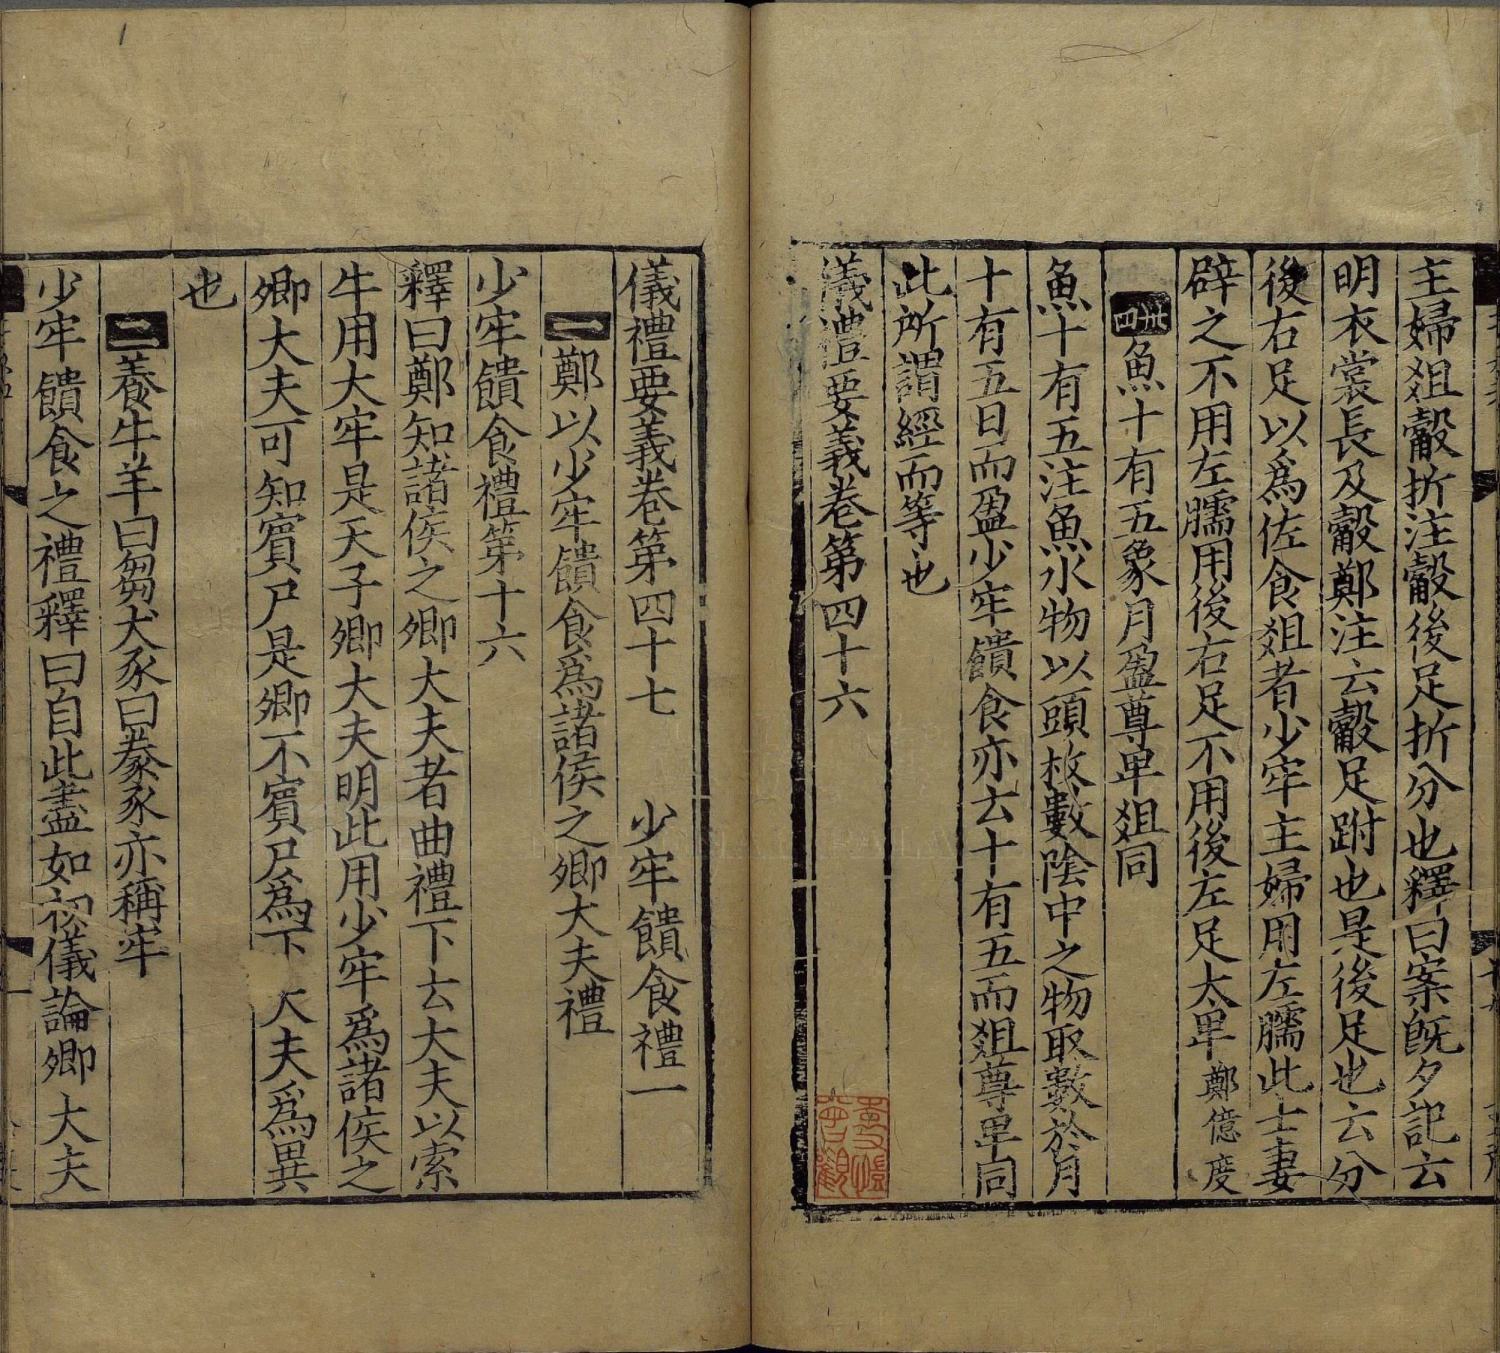 主婦俎觳折注觳後足折分也釋曰案旣夕記云
明衣裳長及觳鄭注云觳足跗也是後足也云分
後右足以爲佐食俎者少牢主婦用左臑此士妻
辟之不用左臑用後右足不用後左足太卑鄭億度
卌四魚十有五象月盈尊卑俎同
魚十有五注魚水物以頭枚數陰中之物取數於月
十有五日而盈少牢饋食亦云十有五而俎尊卑同
此所謂經而等也
儀禮要義卷第四十六
儀禮要義卷第四十七 少牢饋食禮一
一鄭以少牢饋食爲諸侯之卿大夫禮
少牢饋食禮第十六
釋曰鄭知諸侯之卿大夫者曲禮下云大夫以索
牛用大牢是天子卿大夫明此用少牢爲諸侯之
卿大夫可知賓尸是卿不賓尸爲下大夫爲異
也
二養牛羊曰芻犬豕曰豢豕亦稱牢
少牢饋食之禮釋曰自此盡如初儀論卿大夫